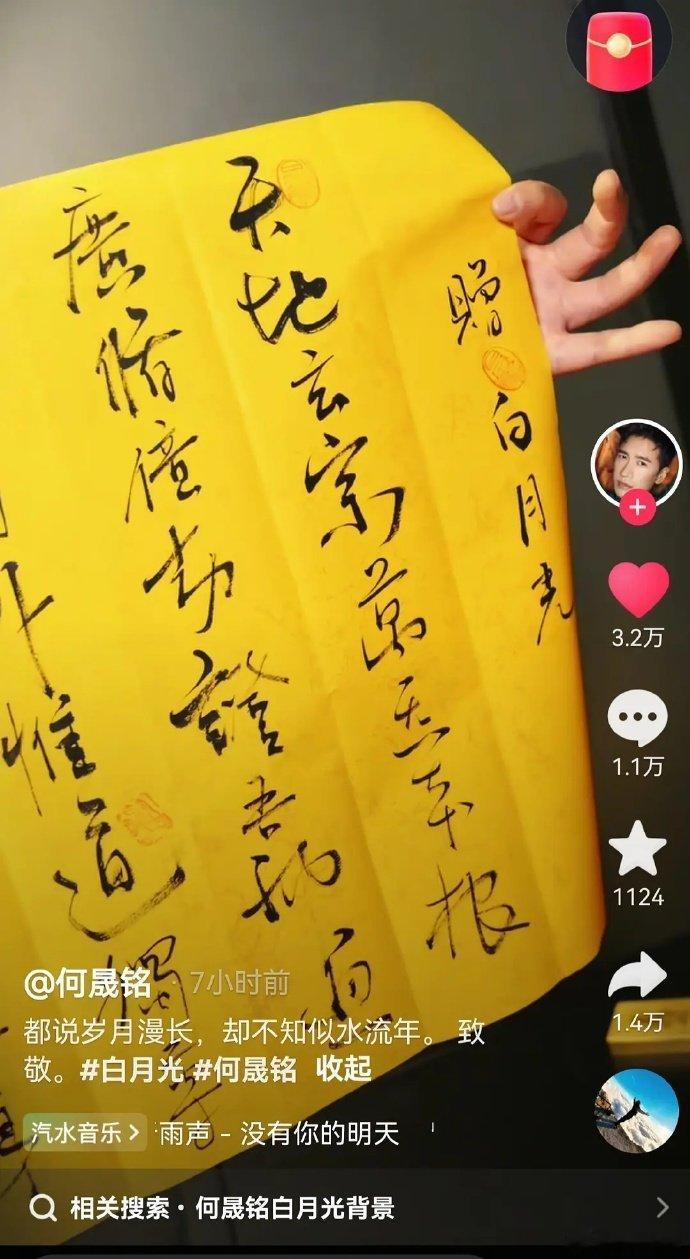 贈白月光
天地玄宗萬炁本根
廣脩億劫證吾神
外惟道獨尊
3.2万
1.1万
1124
1.4万
@何晟铭 · 7小时前
都说岁月漫长，却不知似水流年。致
敬。#白月光 #何晟铭 收起
汽水音乐 > 雨声 - 没有你的明天
相关搜索 · 何晟铭白月光背景